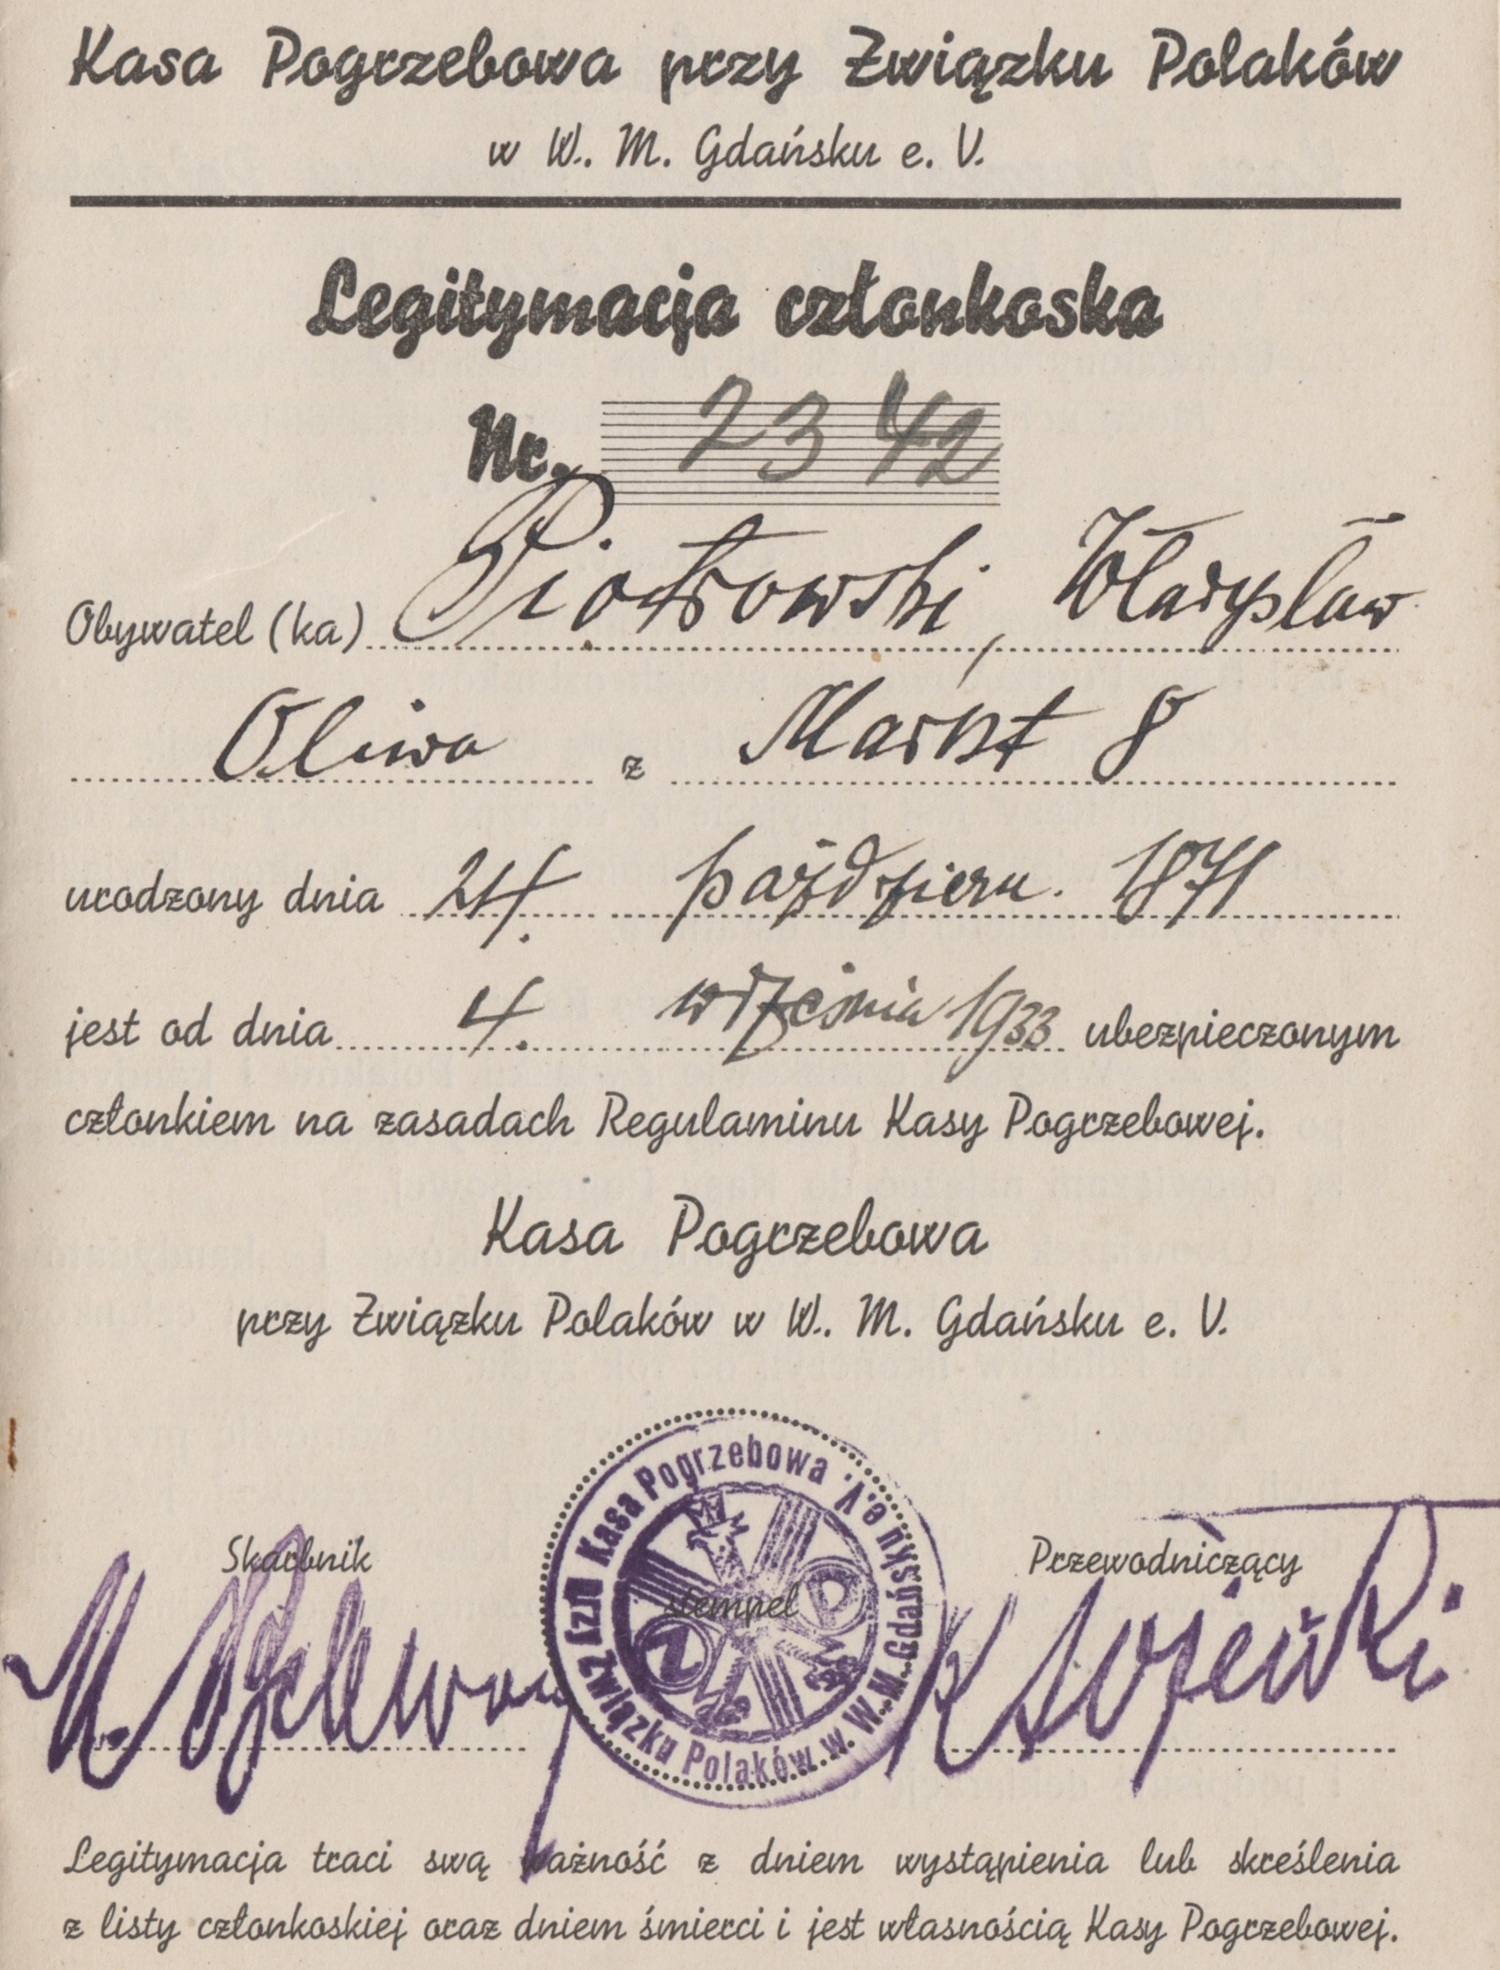 Kasa Pogrzebowa przy Związku Polaków
w W. M. Gdańsku e. V.
Legitymacja członkoska
Nr. 2342
Obywatel (ka) Piotrowski, Władysław
Oliwa z Markt 8
urodzony dnia 24. październ. 1871
jest od dnia 4. września 1933 ubezpieczonym
członkiem na zasadach Regulaminu Kasy Pogrzebowej.
Kasa Pogrzebowa
przy Związku Polaków w W. M. Gdańsku e. V.
Kasa Pogrzebowa przy Związku Polaków w W. M. Gdańsku e. V.
ZP
Skarbnik stempel Przewodniczący
Legitymacja traci swą ważność z dniem wystąpienia lub skreślenia
z listy członkoskiej oraz dniem śmierci i jest własnością Kasy Pogrzebowej.